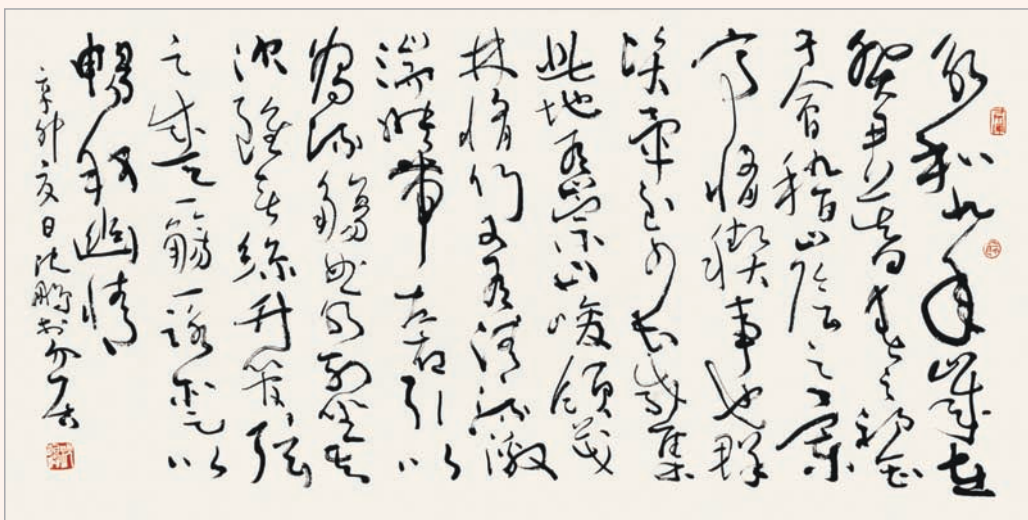 永和九年歲在
癸丑暮春之初會
于會稽山陰之蘭
亭脩禊事也群
賢畢至少長咸集
此地有崇山峻領茂
林脩竹又有清流激
湍映帶左右引以
為流觴曲水列坐其
次雖無絲竹管弦
之盛一觴一詠亦足以
暢敘幽情
辛卯夏日沈鵬於介居